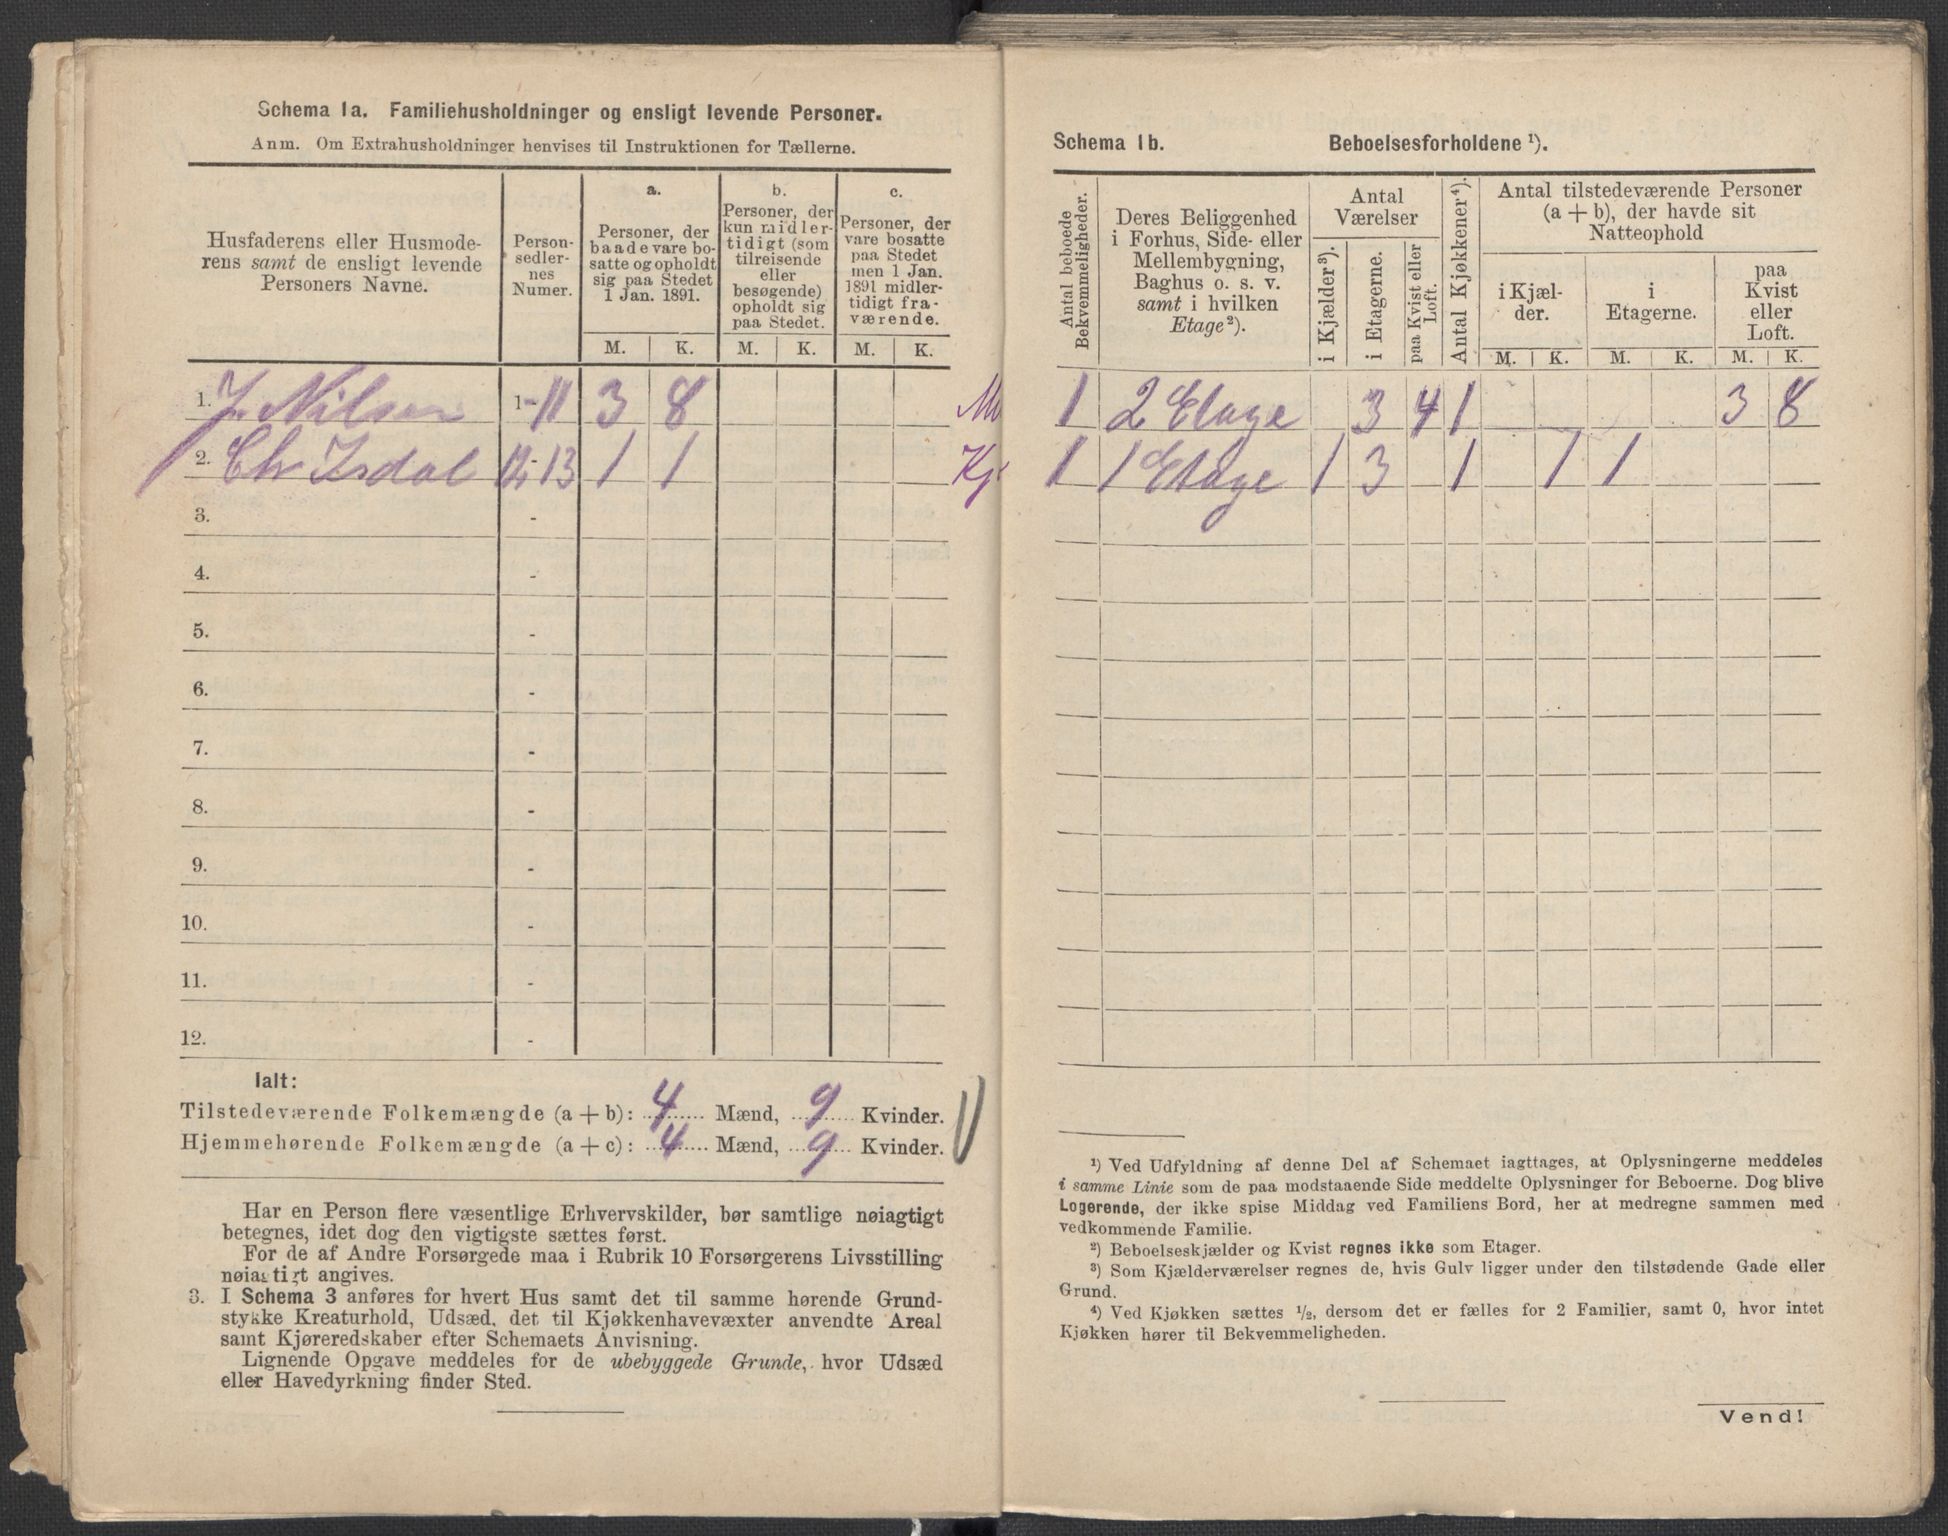 Schema 1a. Familiehusholdninger og ensligt levende Personer.
Anm. Om Extrahusholdninger henvises til Instruktionen for Tællerne.
Husfaderens eller Husmode-
rens samt de ensligt levende
Personers Navne.
Person-
sedler-
nes
Numer.
a.
Personer, der
baade vare bo-
satte og opholdt
sig paa Stedet
1 Jan. 1891.
b.
Personer, der
kun midler-
tidigt (som
tilreisende
eller
besøgende)
opholdt sig
paa Stedet.
c.
Personer, der
vare bosatte
paa Stedet
men 1 Jan.
1891 midler-
tidigt fra-
værende.
M. K. M. K. M. K.
1. J. Nilsen 1-11 3 8
2. Chr Isdal 12-13 1 1
3. -
4. -
5. -
6. -
7. -
8. -
9. -
10. -
11. -
12. -
Ialt:
Tilstedeværende Folkemængde (a + b): 4 Mænd, 9 Kvinder.
Hjemmehørende Folkemængde (a + c): 4 Mænd, 9 Kvinder.
Har en Person flere væsentlige Erhvervskilder, bør samtlige nøiagtigt
betegnes, idet dog den vigtigste sættes først.
For de af Andre Forsørgede maa i Rubrik 10 Forsørgerens Livsstilling
nøiagtigt angives.
3. I Schema 3 anføres for hvert Hus samt det til samme hørende Grund-
stykke Kreaturhold, Udsæd, det til Kjøkkenhavevæxter anvendte Areal
samt Kjøreredskaber efter Schemaets Anvisning.
Lignende Opgave meddeles for de ubebyggede Grunde, hvor Udsæd
eller Havedyrkning finder Sted.
Schema 1b. Beboelsesforholdene ¹).
Antal beboede
Bekvemmeligheder.
Deres Beliggenhed
i Forhus, Side- eller
Mellembygning,
Baghus o. s. v.
samt i hvilken
Etage²).
Antal
Værelser
i Kjælder³).
i Etagerne.
paa Kvist eller
Loft.
Antal Kjøkkener⁴).
Antal tilstedeværende Personer
(a + b), der havde sit
Natteophold
i Kjæl-
der.
i
Etagerne.
paa
Kvist
eller
Loft.
M. K. M. K. M. K.
1 2 Etage 3 4 1 3 8
1 1 Etage 1 3 1 1 1
¹) Ved Udfyldning af denne Del af Schemaet iagttages, at Oplysningerne meddeles
i samme Linie som de paa modstaaende Side meddelte Oplysninger for Beboerne. Dog blive
Logerende, der ikke spise Middag ved Familiens Bord, her at medregne sammen med
vedkommende Familie.
²) Beboelseskjælder og Kvist regnes ikke som Etager.
³) Som Kjælderværelser regnes de, hvis Gulv ligger under den tilstødende Gade eller
Grund.
⁴) Ved Kjøkken sættes ½, dersom det er fælles for 2 Familier, samt 0, hvor intet
Kjøkken hører til Bekvemmeligheden.
Vend!